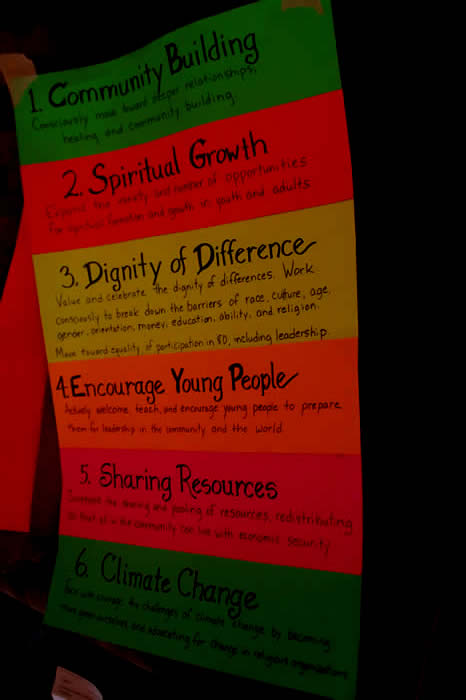 1. Community Building
Consciously move toward deeper relationships,
healing and community building.
2. Spiritual Growth
Expand the variety and number of opportunities
for spiritual formation and growth in youth and adults
3. Dignity of Difference
Value and celebrate the dignity of differences. Work
consciously to break down the barriers of race, culture, age,
gender, orientation, money, education, ability, and religion.
Move toward equality of participation in 8D, including leadership.
4. Encourage Young People
Actively welcome, teach, and encourage young people to prepare
them for leadership in the community and the world.
5. Sharing Resources
the sharing and pooling of resources, redistributing
so that all in the community can live with economic security
6. Climate Change
Face with courage the challenges of climate change by becoming
more green ourselves and advocating for change in religious organizations